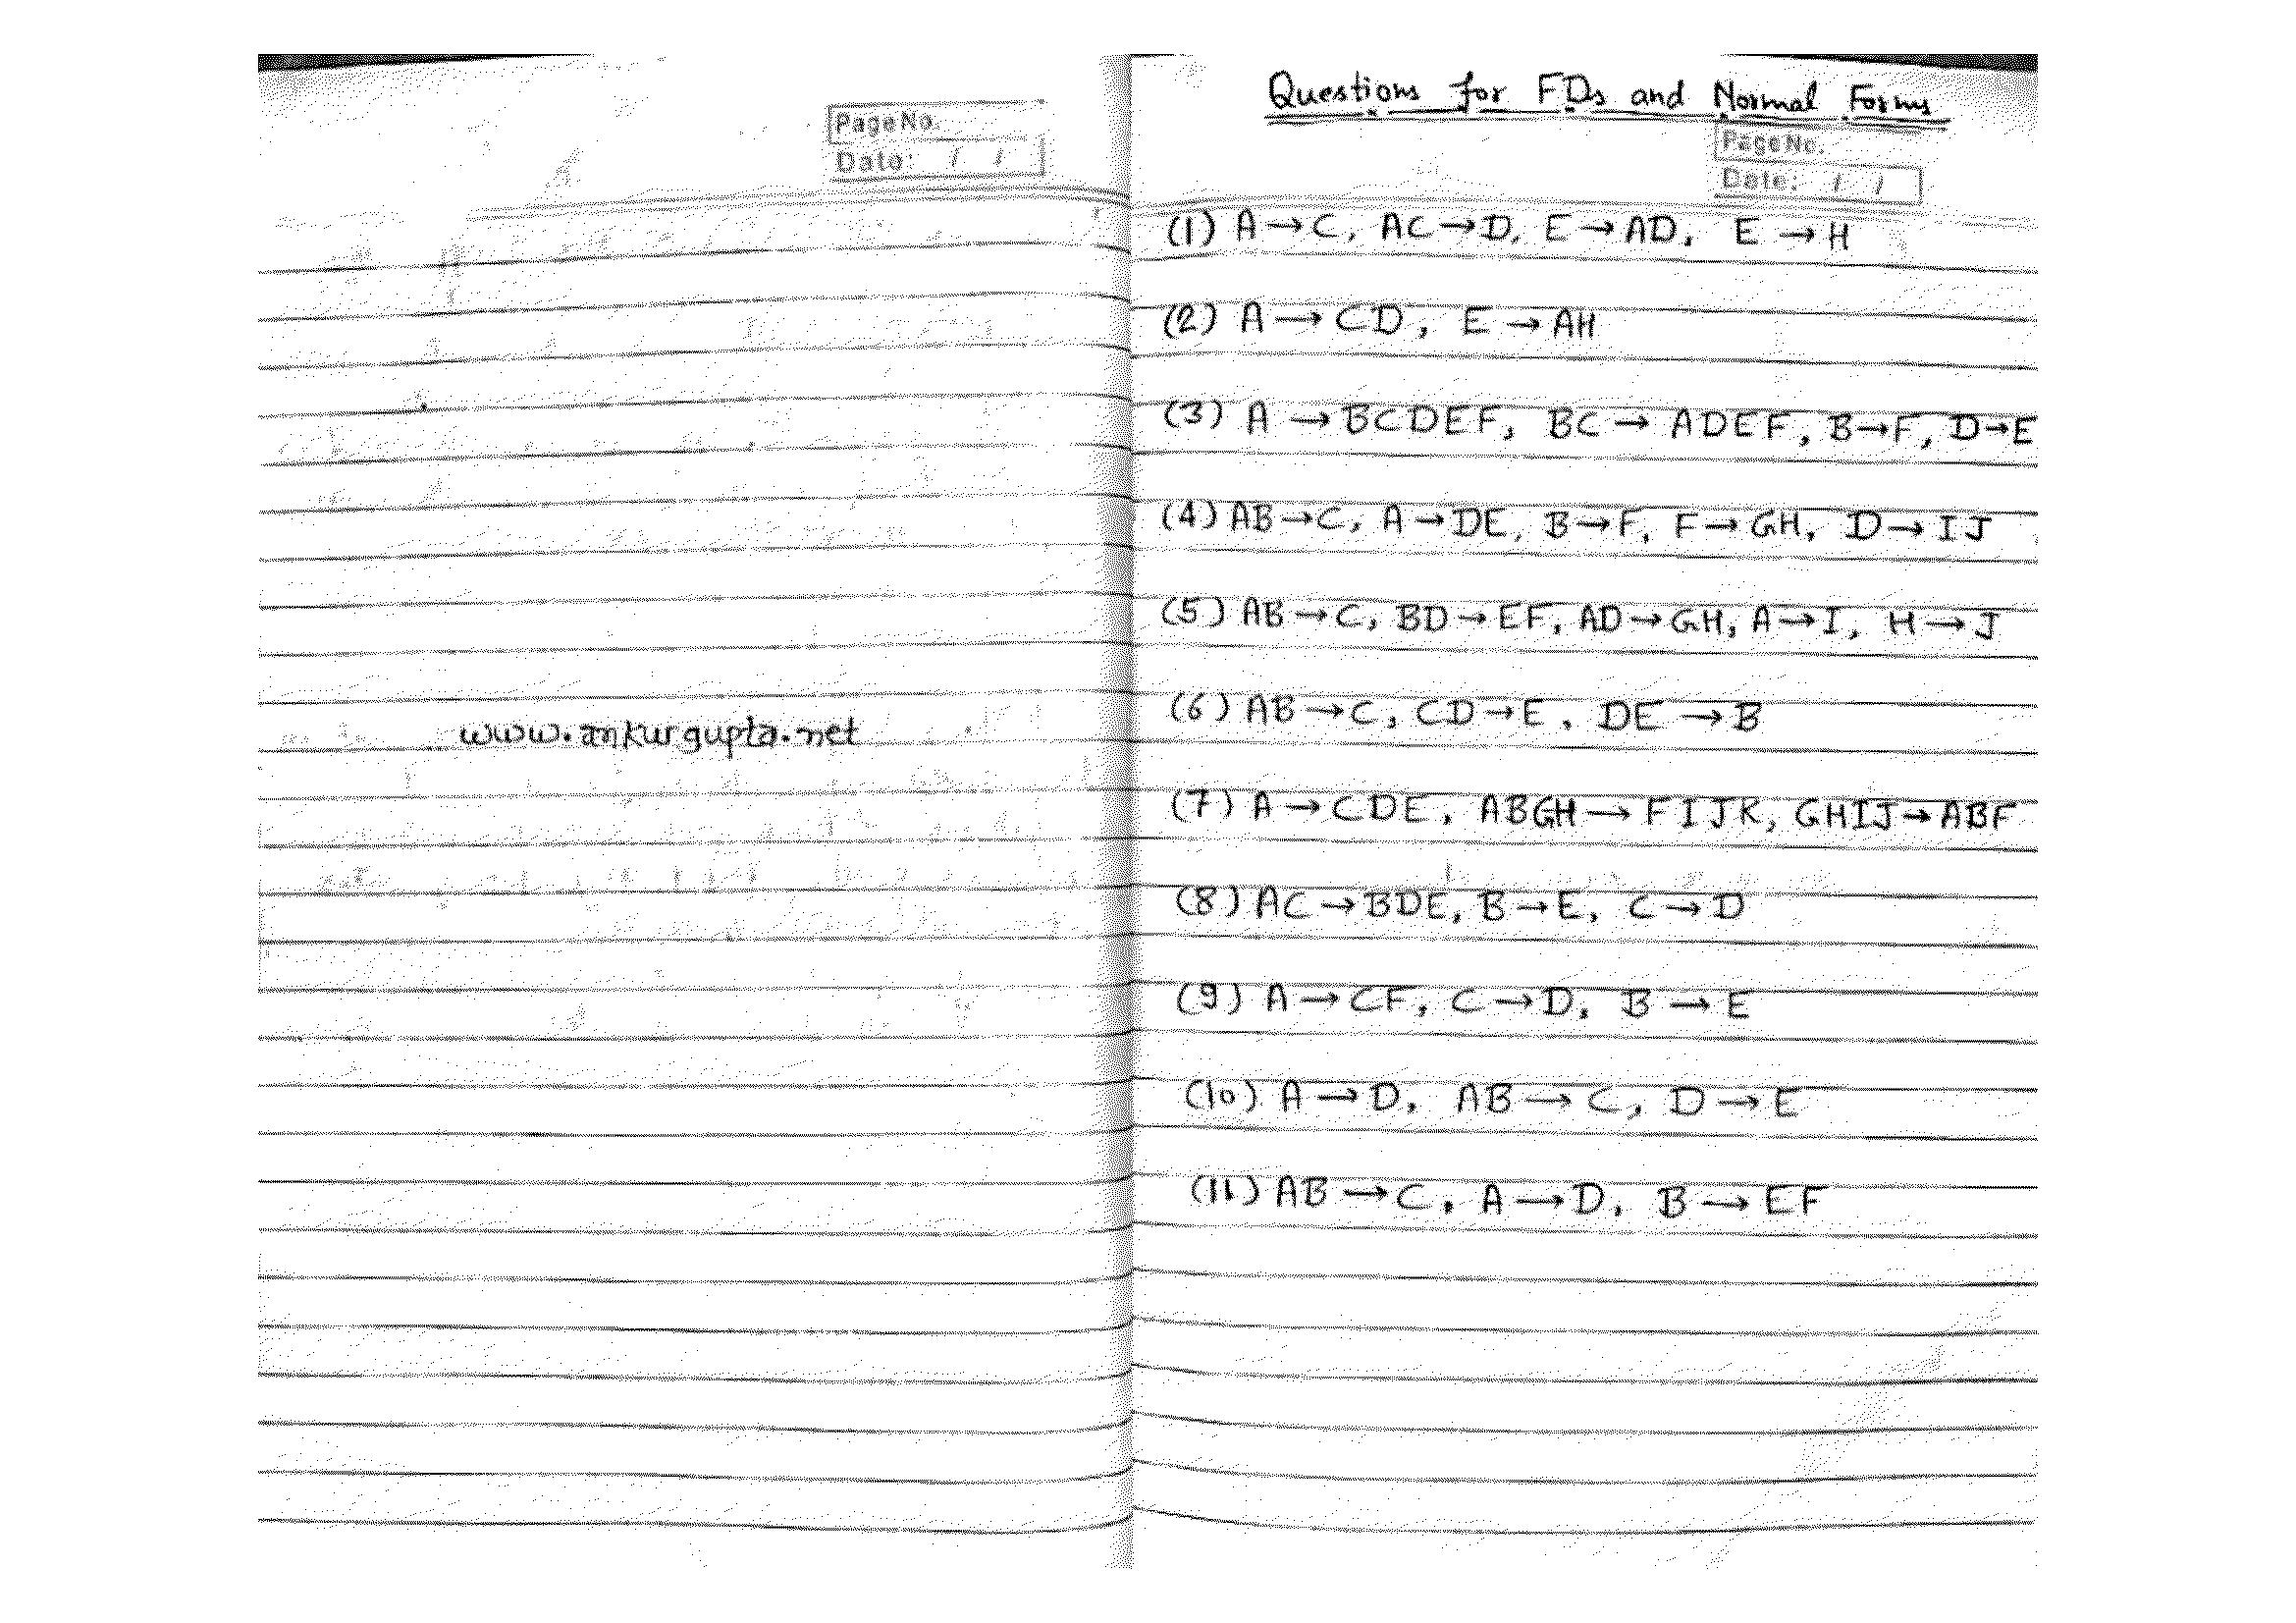 Page No.
Date: / /
www.ankurgupta.net
Questions for FDs and Normal Forms
Page No.
Date: / /
(1) A → C, AC → D, E → AD, E → H
(2) A → CD, E → AH
(3) A → BCDEF, BC → ADEF, B → F, D → E
(4) AB → C, A → DE, B → F, F → GH, D → IJ
(5) AB → C, BD → EF, AD → GH, A → I, H → J
(6) AB → C, CD → E, DE → B
(7) A → CDE, ABGH → FIJK, GHIJ → ABF
(8) AC → BDE, B → E, C → D
(9) A → CF, C → D, B → E
(10) A → D, AB → C, D → E
(11) AB → C, A → D, B → EF